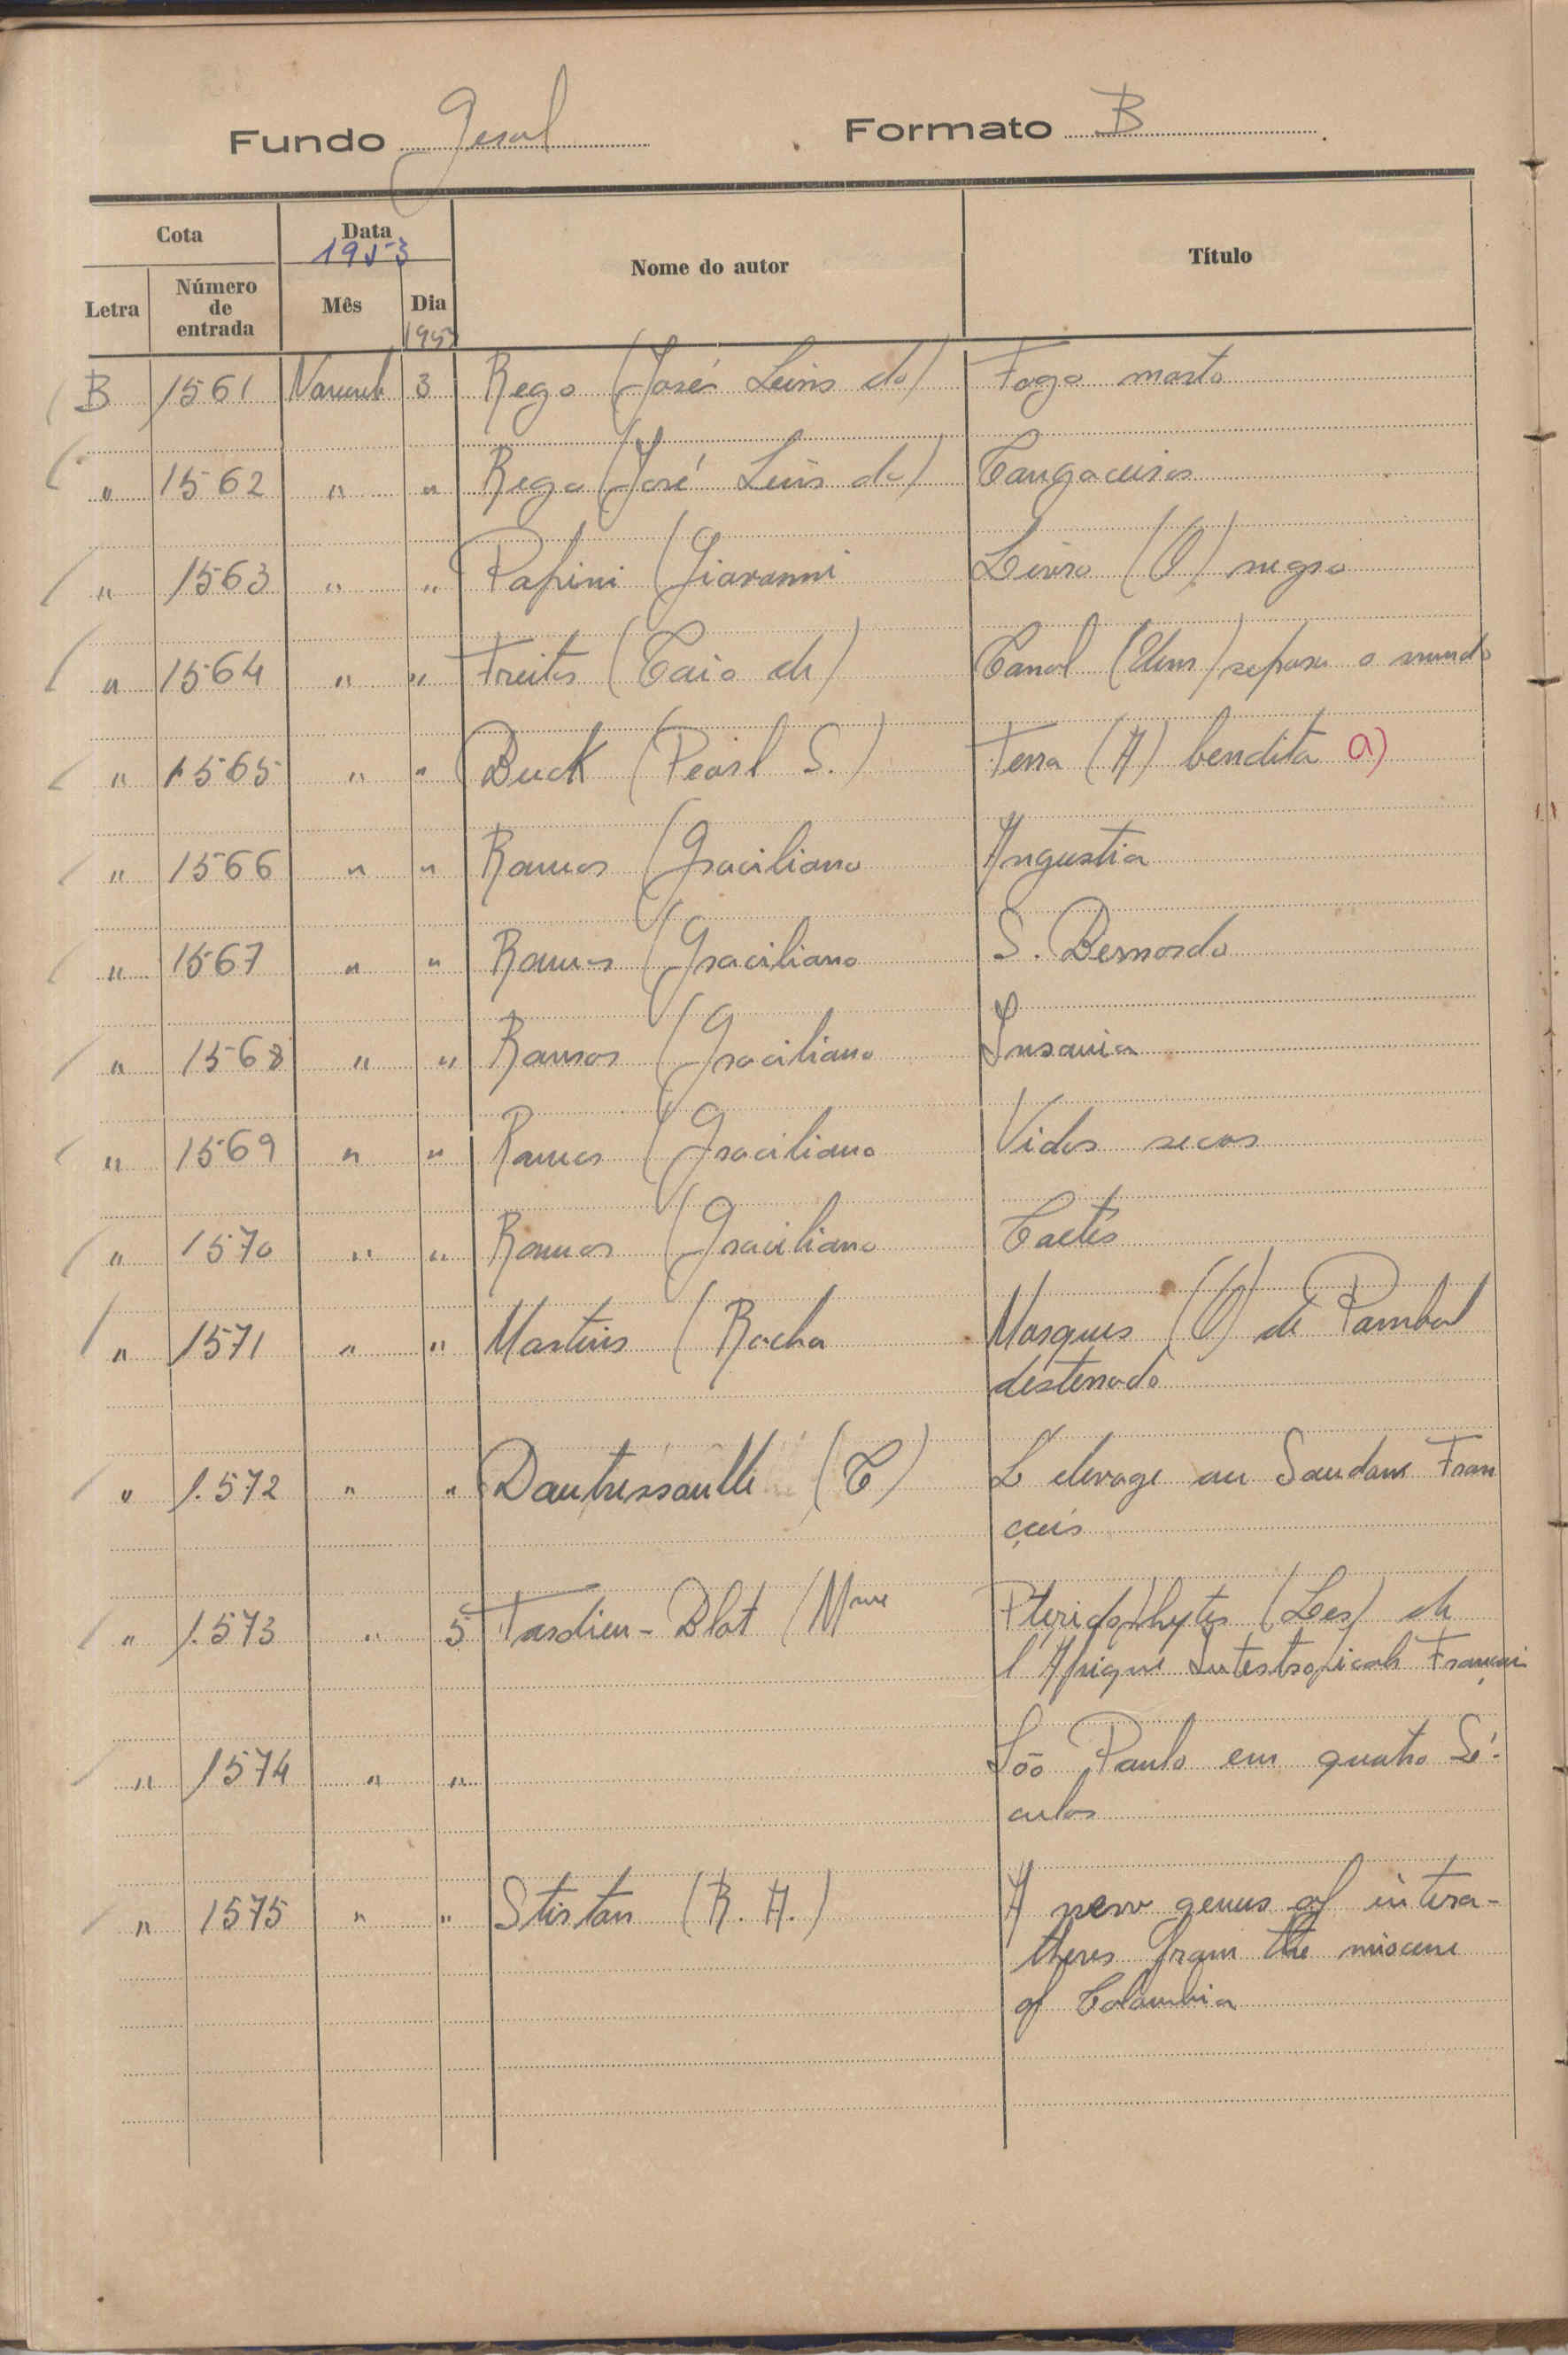 Fundo Geral Formato B
Cota Data Nome do autor Título
1953
Letra Número de entrada Mês Dia
1953
B 1561 Novemb 3 Rego (José Leins do) Fogo morto
" 1562 " " Rego (José Leins do) Cangaceiros
" 1563 " " Papini (Giovanni Livro (O) negro
" 1564 " " Freitas (Caio de) Canal (Um) separa o mundo
" 1565 " " Buck (Pearl S.) Terra (A) bendita a)
" 1566 " " Ramos (Graciliano Angustia
" 1567 " " Ramos (Graciliano S. Bernardo
" 1568 " " Ramos (Graciliano Insonia
" 1569 " " Ramos (Graciliano Vidas secas
" 1570 " " Ramos (Graciliano Caetés
" 1571 " " Martins (Rocha Marques (O) de Pombal
desterrado
" 1.572 " " (C) L'elevage au Soudane Fran
çais
" 1.573 " 5 Tardieu-Blot (Mme Pteridophytes (Les) de
l'Afrique Intertropicale Françai
" 1574 " " São Paulo em quatro Sé-
culos
" 1575 " " Stirton (R. A.) A new genus of intera-
theres from the miocene
of Colombia